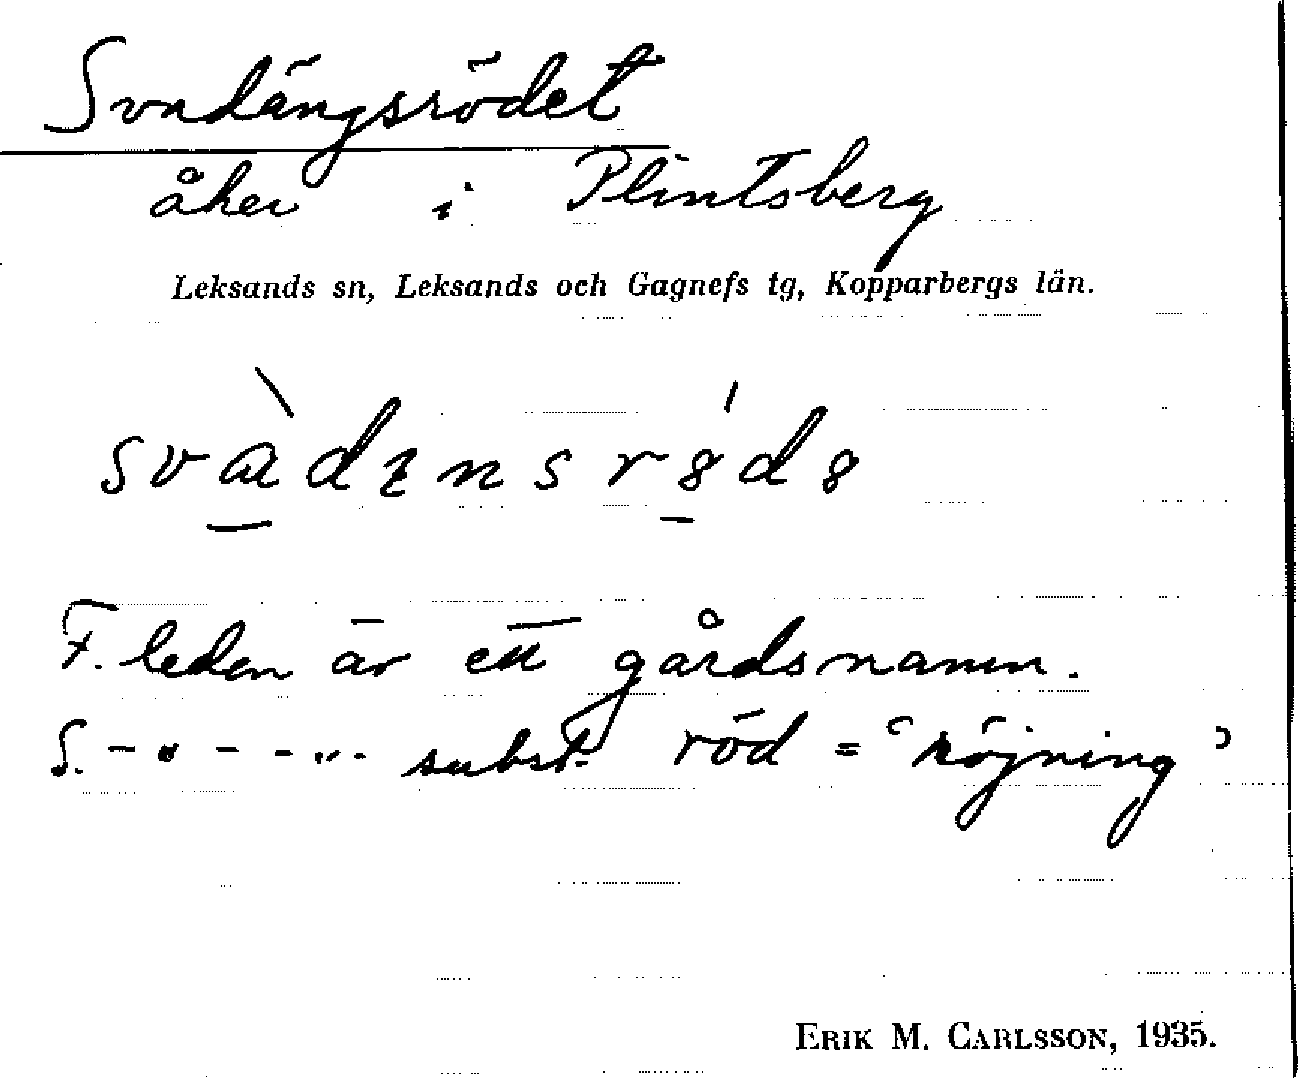 Svndängsrödet
åker i Plintsberg
Leksands sn, Leksands och Gagnefs tg, Kopparbergs län.
F. leden är ett gårdsnamn.
S. - " - - " - subst. röd = 'röjning'
ERIK M. CARLSSON, 1935.